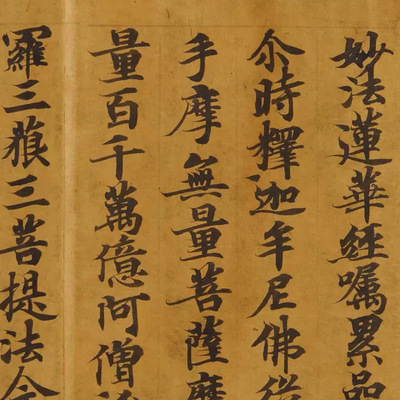 妙法蓮華經囑累品
尒時釋迦牟尼佛從
手摩無量菩薩摩
量百千萬億阿僧祇
羅三藐三菩提法今